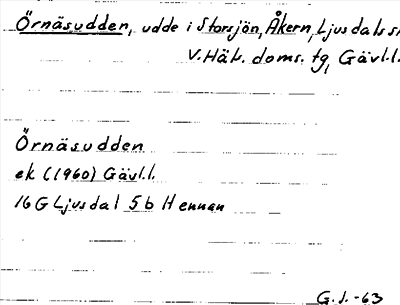 Örnäsudden, udde i Storsjön, Åkern, Ljusdals sn
V. Häls. doms. tg, Gävl.l.
Örnäsudden
ek (1960) Gävl.l.
16 G Ljusdal 5 b Hennan
G.J. -63